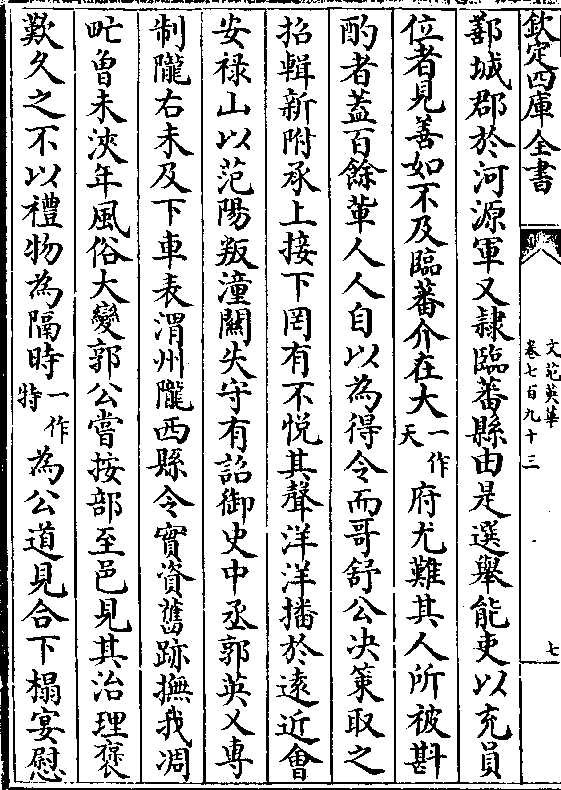 欽定四庫全書
文苑英華
卷七百九十三
七
鄯城郡於河源軍又隷臨蕃縣由是選舉能吏以充員
位者見善如不及臨蕃介在大一作天府尤難其人所被斟
酌者蓋百餘軰人人自以為得令而哥舒公决策取之
招輯新附承上接下罔有不悦其聲洋洋播於逺近會
安禄山以范陽叛潼關失守有詔御史中丞郭英乂專
制隴右未及下車表渭州隴西縣令實資舊跡撫我凋
甿曽未浹年風俗大變郭公嘗按部至邑見其治理褒
歎久之不以禮物為隔時一作特為公道見合下榻宴慰